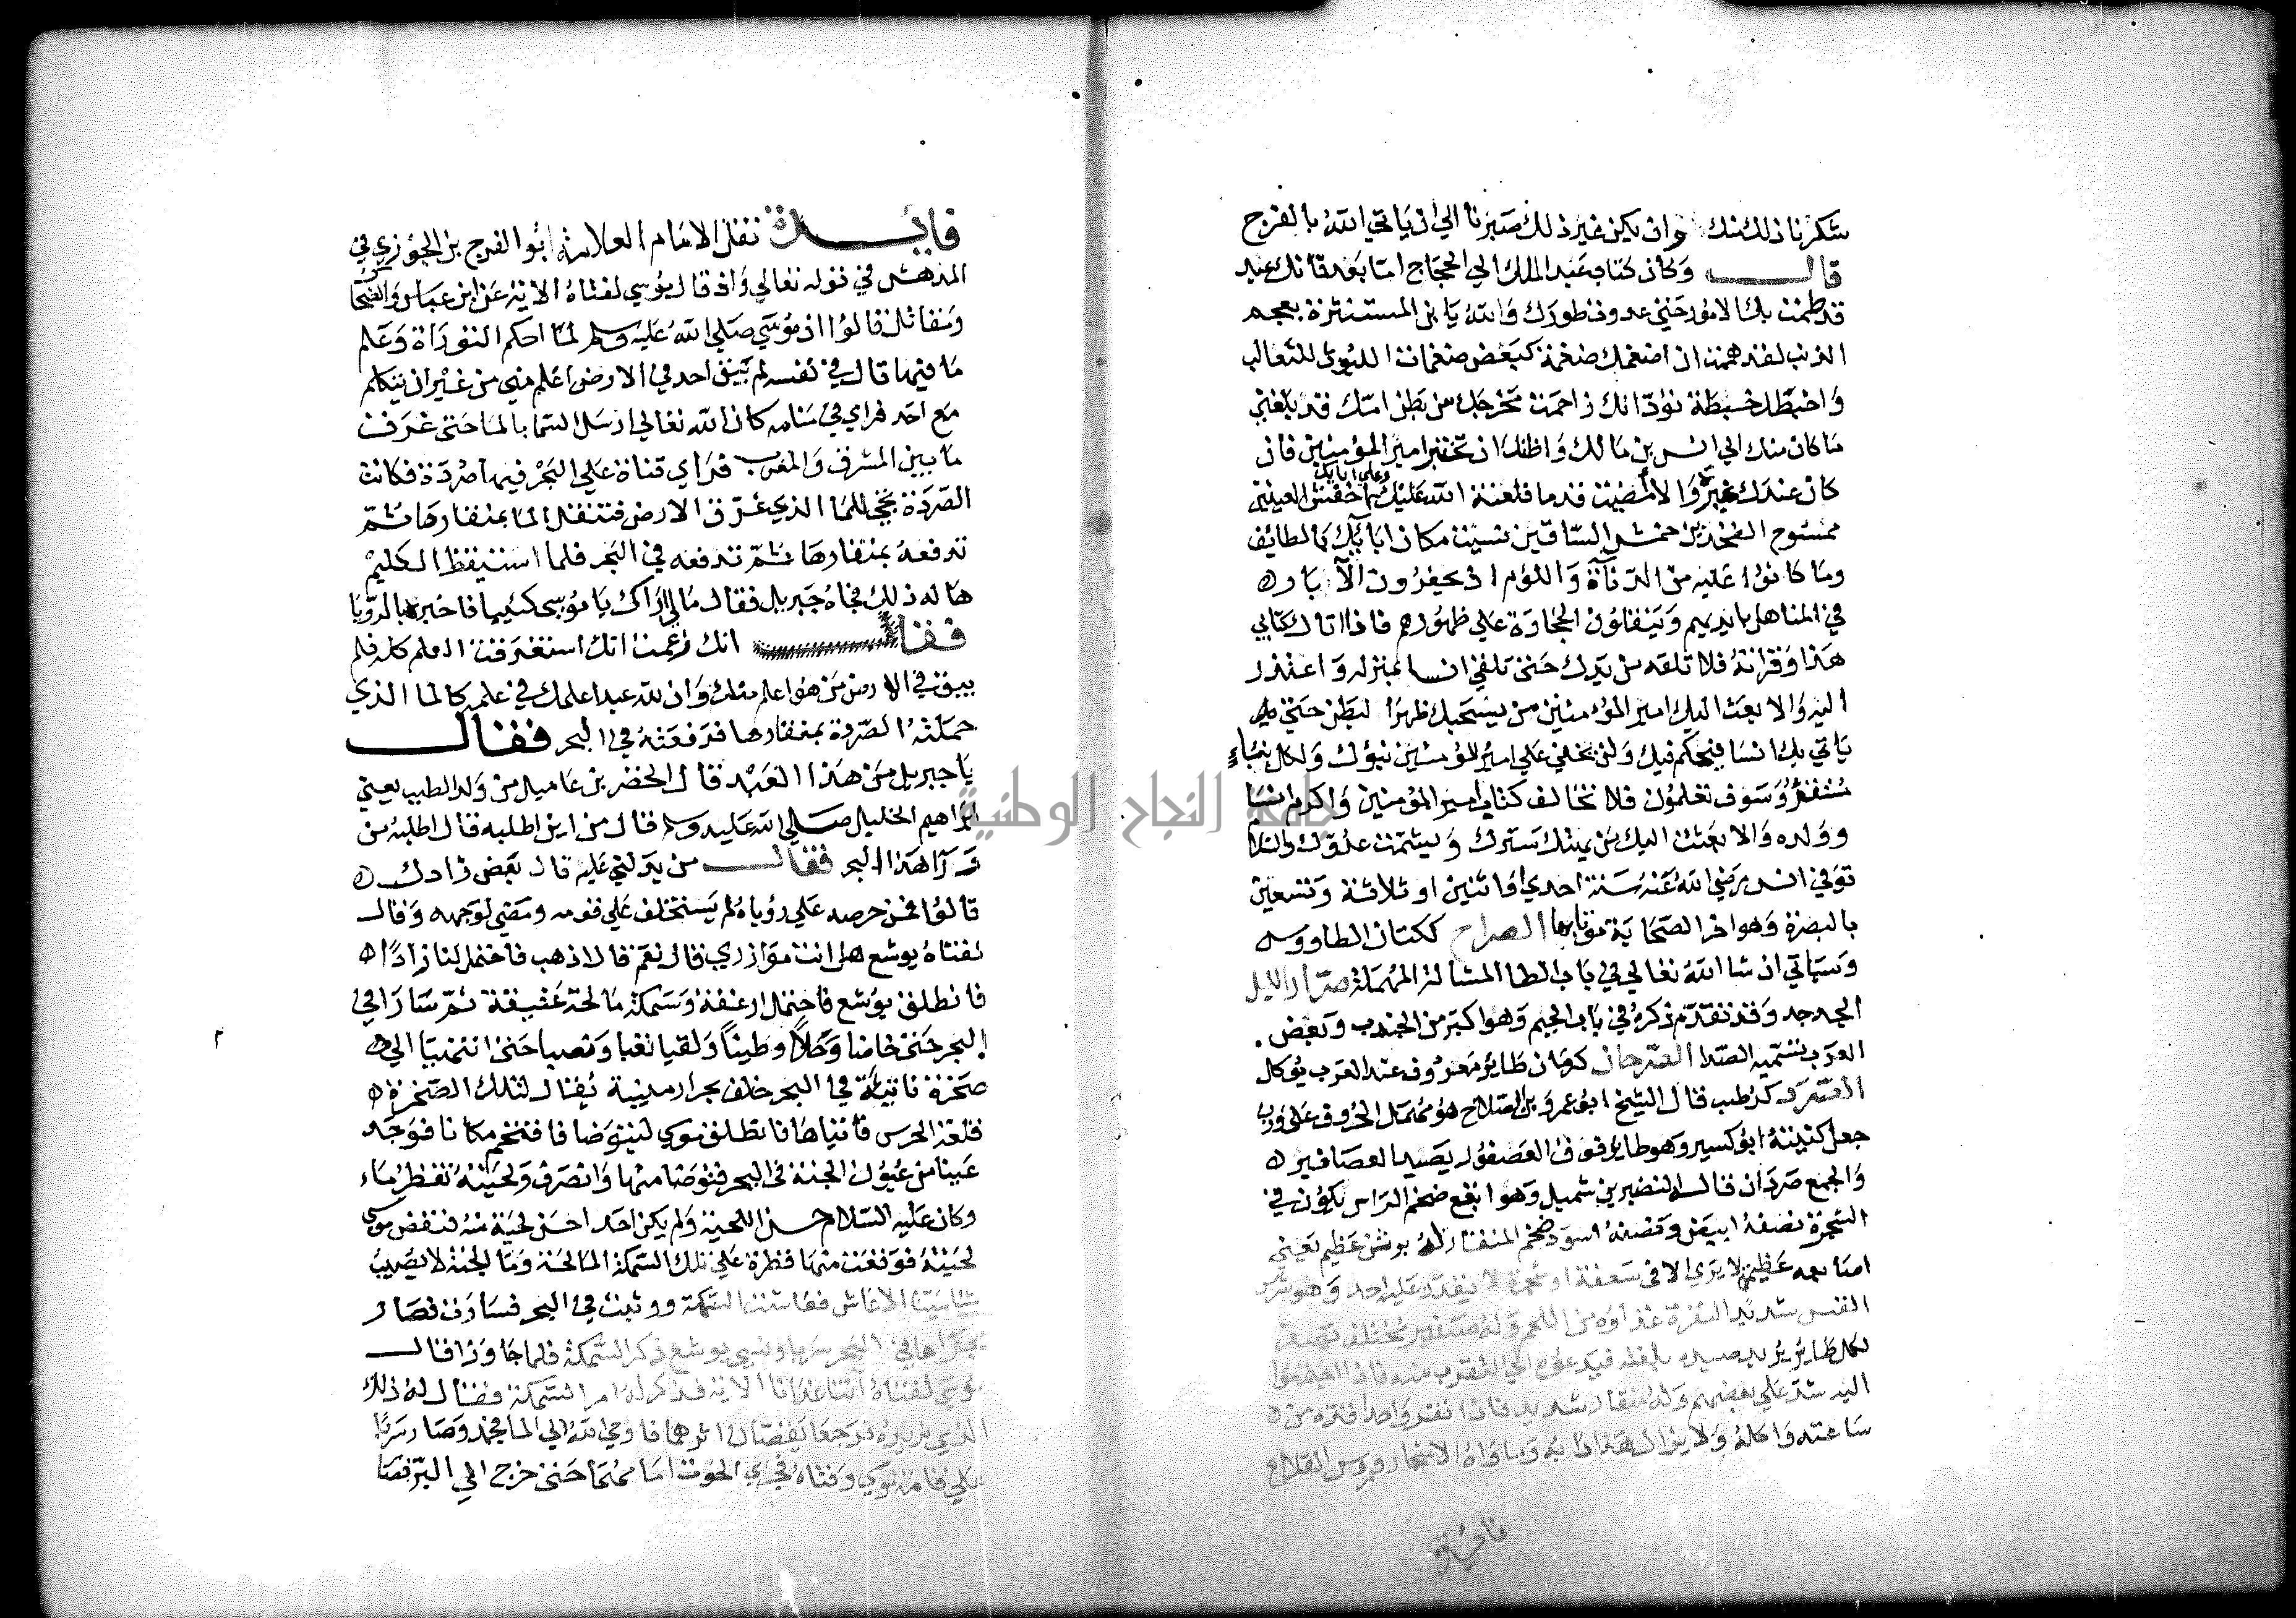 شكرنا ذلك منك وان يكن غير ذلك صبرنا الي ان ياتي الله بالفرج
قال وكان كتاب عبد الملك الي الحجاج اما بعد فانك عبد
قد طمت بك الامور حتي عدوت طورك والله يا بن المستنثرة بعجم
الزبيب لقد هممت ان اضغمك ضغمة كبعض ضغمات الليوث للثعالب
واخبطك خبطة تود انك زاحمت مخرجك من بطن امك قد بلغني
ما كان منك الي انس بن مالك واظنك ان تختبر امير المؤمنين فان
كان عندك غيرة والا امضيت قدما فلعنة الله عليك وعلي ابايك اخفش العينين
ممسوح الفخذين حمش الساقين نسيت مكان ابائك بالطائف
وما كانوا عليه من الدناءة واللؤم اذ يحفرون الآبار
في المناهل بايديهم وينقلون الحجارة علي ظهورهم فاذا اتاك كتابي
هذا وقراته فلا تلقه من يدك حتي تلقي انسا بمنزله واعتذر
اليه والا بعث اليك امير المؤمنين من يسحبك ظهرا لبطن حتي
ياتي بك انسا فيحكم فيك ولن يخفي علي امير المؤمنين نبؤك ولكل نباء
مستقر وسوف تعلمون فلا تخالف كتاب امير المؤمنين واكرم انسا
وولده والا بعثت اليك من يهتك سترك ويشمت عدوك والسلام
توفي انس رضي الله عنه سنة احدي او اثنين او ثلاثة وتسعين
بالبصرة وهو اخر الصحابة موتا بها الصراح ككتان الطاووس
وسياتي ان شا الله تعالي في باب الطا المشالة المهملة صرار الليل
الجدجد وقد تقدم ذكره في باب الجيم وهو اكبر من الجندب وبعض
العرب يسميه الصدا الصرحان كرمان طاير معروف عند العرب يوكل
الصرد كرطب قال الشيخ ابو عمرو بن الصلاح هو مهمل الحروف علي وزن
جعل كنيته ابو كسير وهو طاير فوق العصفور يصيد العصافير
والجمع صردان قال النضير بن شميل وهو ابقع ضخم الراس يكون في
الشجرة نصفه ابيض ونصفه اسود ضخم المنقار له برثن عظيم يعني
اصابعه عظيم لا يري الا في سعفة او شجرة لا يقدر عليه احد وهو شرس
النفس شديد النفرة غذاوه من اللحم وله صفير مختلف يصفر
لكل طاير يريد صيده بلغته فيدعوه الي التقرب منه فاذا اجتمعوا
اليه شد علي بعضهم وله منقار شديد فاذا نقر واحدا قده من
ساعته واكله ولا يزال هذا دابه وماواه الاشجار وروس القلاع
فائدة
فايدة نقل الامام العلامة ابو الفرج بن الجوزي في
المدهش في قوله تعالي واذ قال موسي لفتاه الاية عن ابن عباس والضحاك
ومقاتل قالوا ان موسي صلي الله عليه وسلم لما احكم التوراة وعلم
ما فيها قال في نفسه لم يبق احد في الارض اعلم مني من غير ان يتكلم
مع احد فراي في منامه كان الله تعالي ارسل السما بالما حتي غرقت
ما بين المشرق والمغرب فراي قناة علي البحر فيها صردة فكانت
الصردة تجي للما الذي غرق الارض فتنقل الما بمنقارها ثم
تدفعه بمنقارها ثم تدفعه في البحر فلما استيقظ الكليم
هاله ذلك فجاه جبريل فقال ما لي اراك يا موسي كئيبا فاخبره بالرويا
فقال انك زعمت انك استغرقت العلم كله فلم
يبق في الارض من هو اعلم منك وان لله عبدا علمك في علمه كالما الذي
حملته الصردة بمنقارها فدفعته في البحر فقال
يا جبريل من هذا العبد قال الخضر بن عاميل من ولد الطيب يعني
ابراهيم الخليل صلي الله عليه وسلم قال من اين اطلبه قال اطلبه من
ورآ هذا البحر فقال من يدلني عليه قال بعض زادك
قالوا فمن حرصه علي روياه لم يستخلف علي قومه ومضي لوجهه وقال
لفتاه يوشع هل انت موازري قال نعم قال اذهب فاحتمل لنا زادا
فانطلق يوشع فاحتمل ارغفة وسمكة مالحة عتيقة ثم سارا في
البحر حتي خاضا وحلا وطينا ولقيا تعبا ونصبا حتي انتهيا الي
صخرة ناتئة في البحر خلف بحر ارمينية يقال لتلك الصخرة
قلعة الحرس فاتياها فانطلق موسي ليتوضا فاقتحم مكانا فوجد
عينا من عيون الجنة في البحر فتوضا منها وانصرف ولحيته تقطر ماء
وكان عليه السلام حسن اللحية ولم يكن احد احسن لحية منه فنفض موسي
لحيته فوقعت منها قطرة علي تلك السمكة المالحة وما الجنة لا يصيب
شيا ميتا الا عاش فعاشت السمكة ووثبت في البحر فسارت فصار
مجراها في البحر سربا ونسي يوشع ذكر السمكة فلما جاوزا قال
موسي لفتاه آتنا غدانا الاية فذكر له امر السمكة فقال له ذلك
الذي نريده فرجعا يقصان اثرهما فاوحي الله الي الما فجمد وصار سربا
علي قامة موسي وفتاه فجري الحوت امامهما حتي خرج الي البر فصا
٢
جامعة النجاح الوطنية